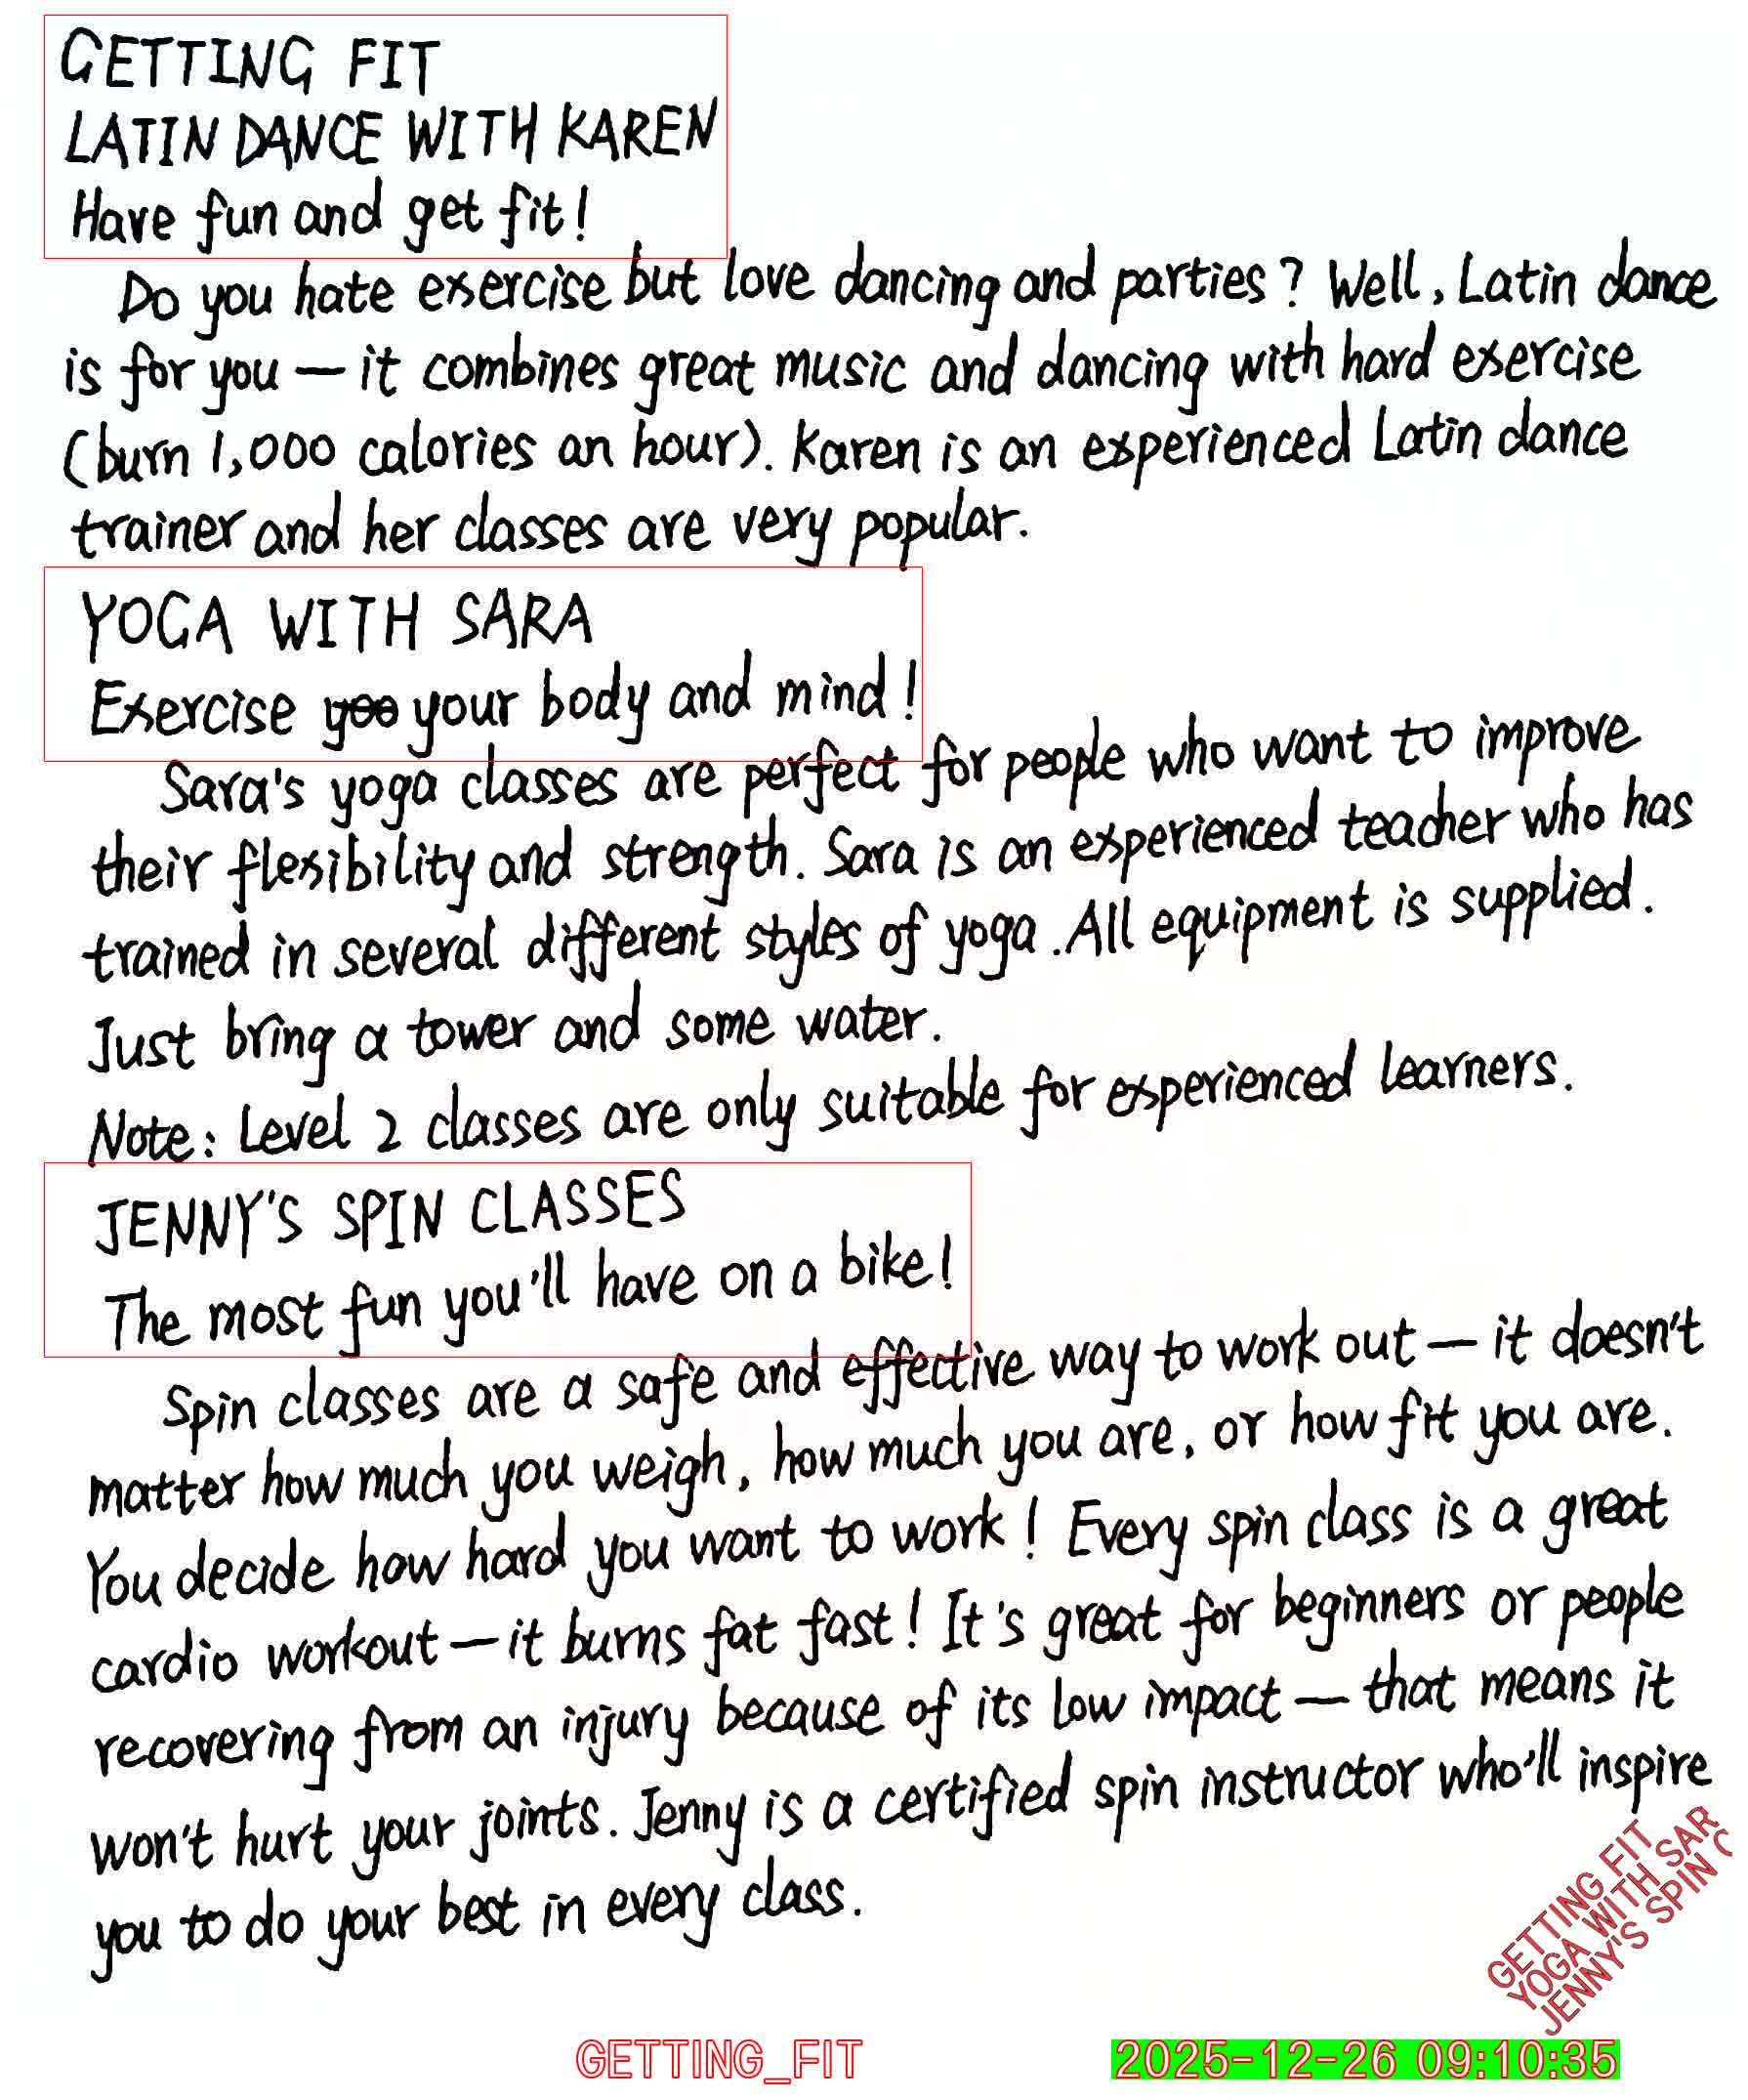 GETTING FIT
LATIN DANCE WITH KAREN
Have fun and get fit!
Do you hate exercise but love dancing and parties? Well, Latin dance
is for you — it combines great music and dancing with hard exercise
(burn 1,000 calories an hour). Karen is an experienced Latin dance
trainer and her classes are very popular.
YOGA WITH SARA
Exercise yoo your body and mind!
Sara's yoga classes are perfect for people who want to improve
their flexibility and strength. Sara is an experienced teacher who has
trained in several different styles of yoga. All equipment is supplied.
Just bring a tower and some water.
Note: Level 2 classes are only suitable for experienced learners.
JENNY'S SPIN CLASSES
The most fun you'll have on a bike!
Spin classes are a safe and effective way to work out — it doesn't
matter how much you weigh, how much you are, or how fit you are.
You decide how hard you want to work! Every spin class is a great
cardio workout — it burns fat fast! It's great for beginners or people
recovering from an injury because of its low impact — that means it
won't hurt your joints. Jenny is a certified spin instructor who'll inspire
you to do your best in every class.
GETTING FIT
YOGA WITH SAR
JENNY'S SPIN C
GETTING_FIT
2025-12-26 09:10:35